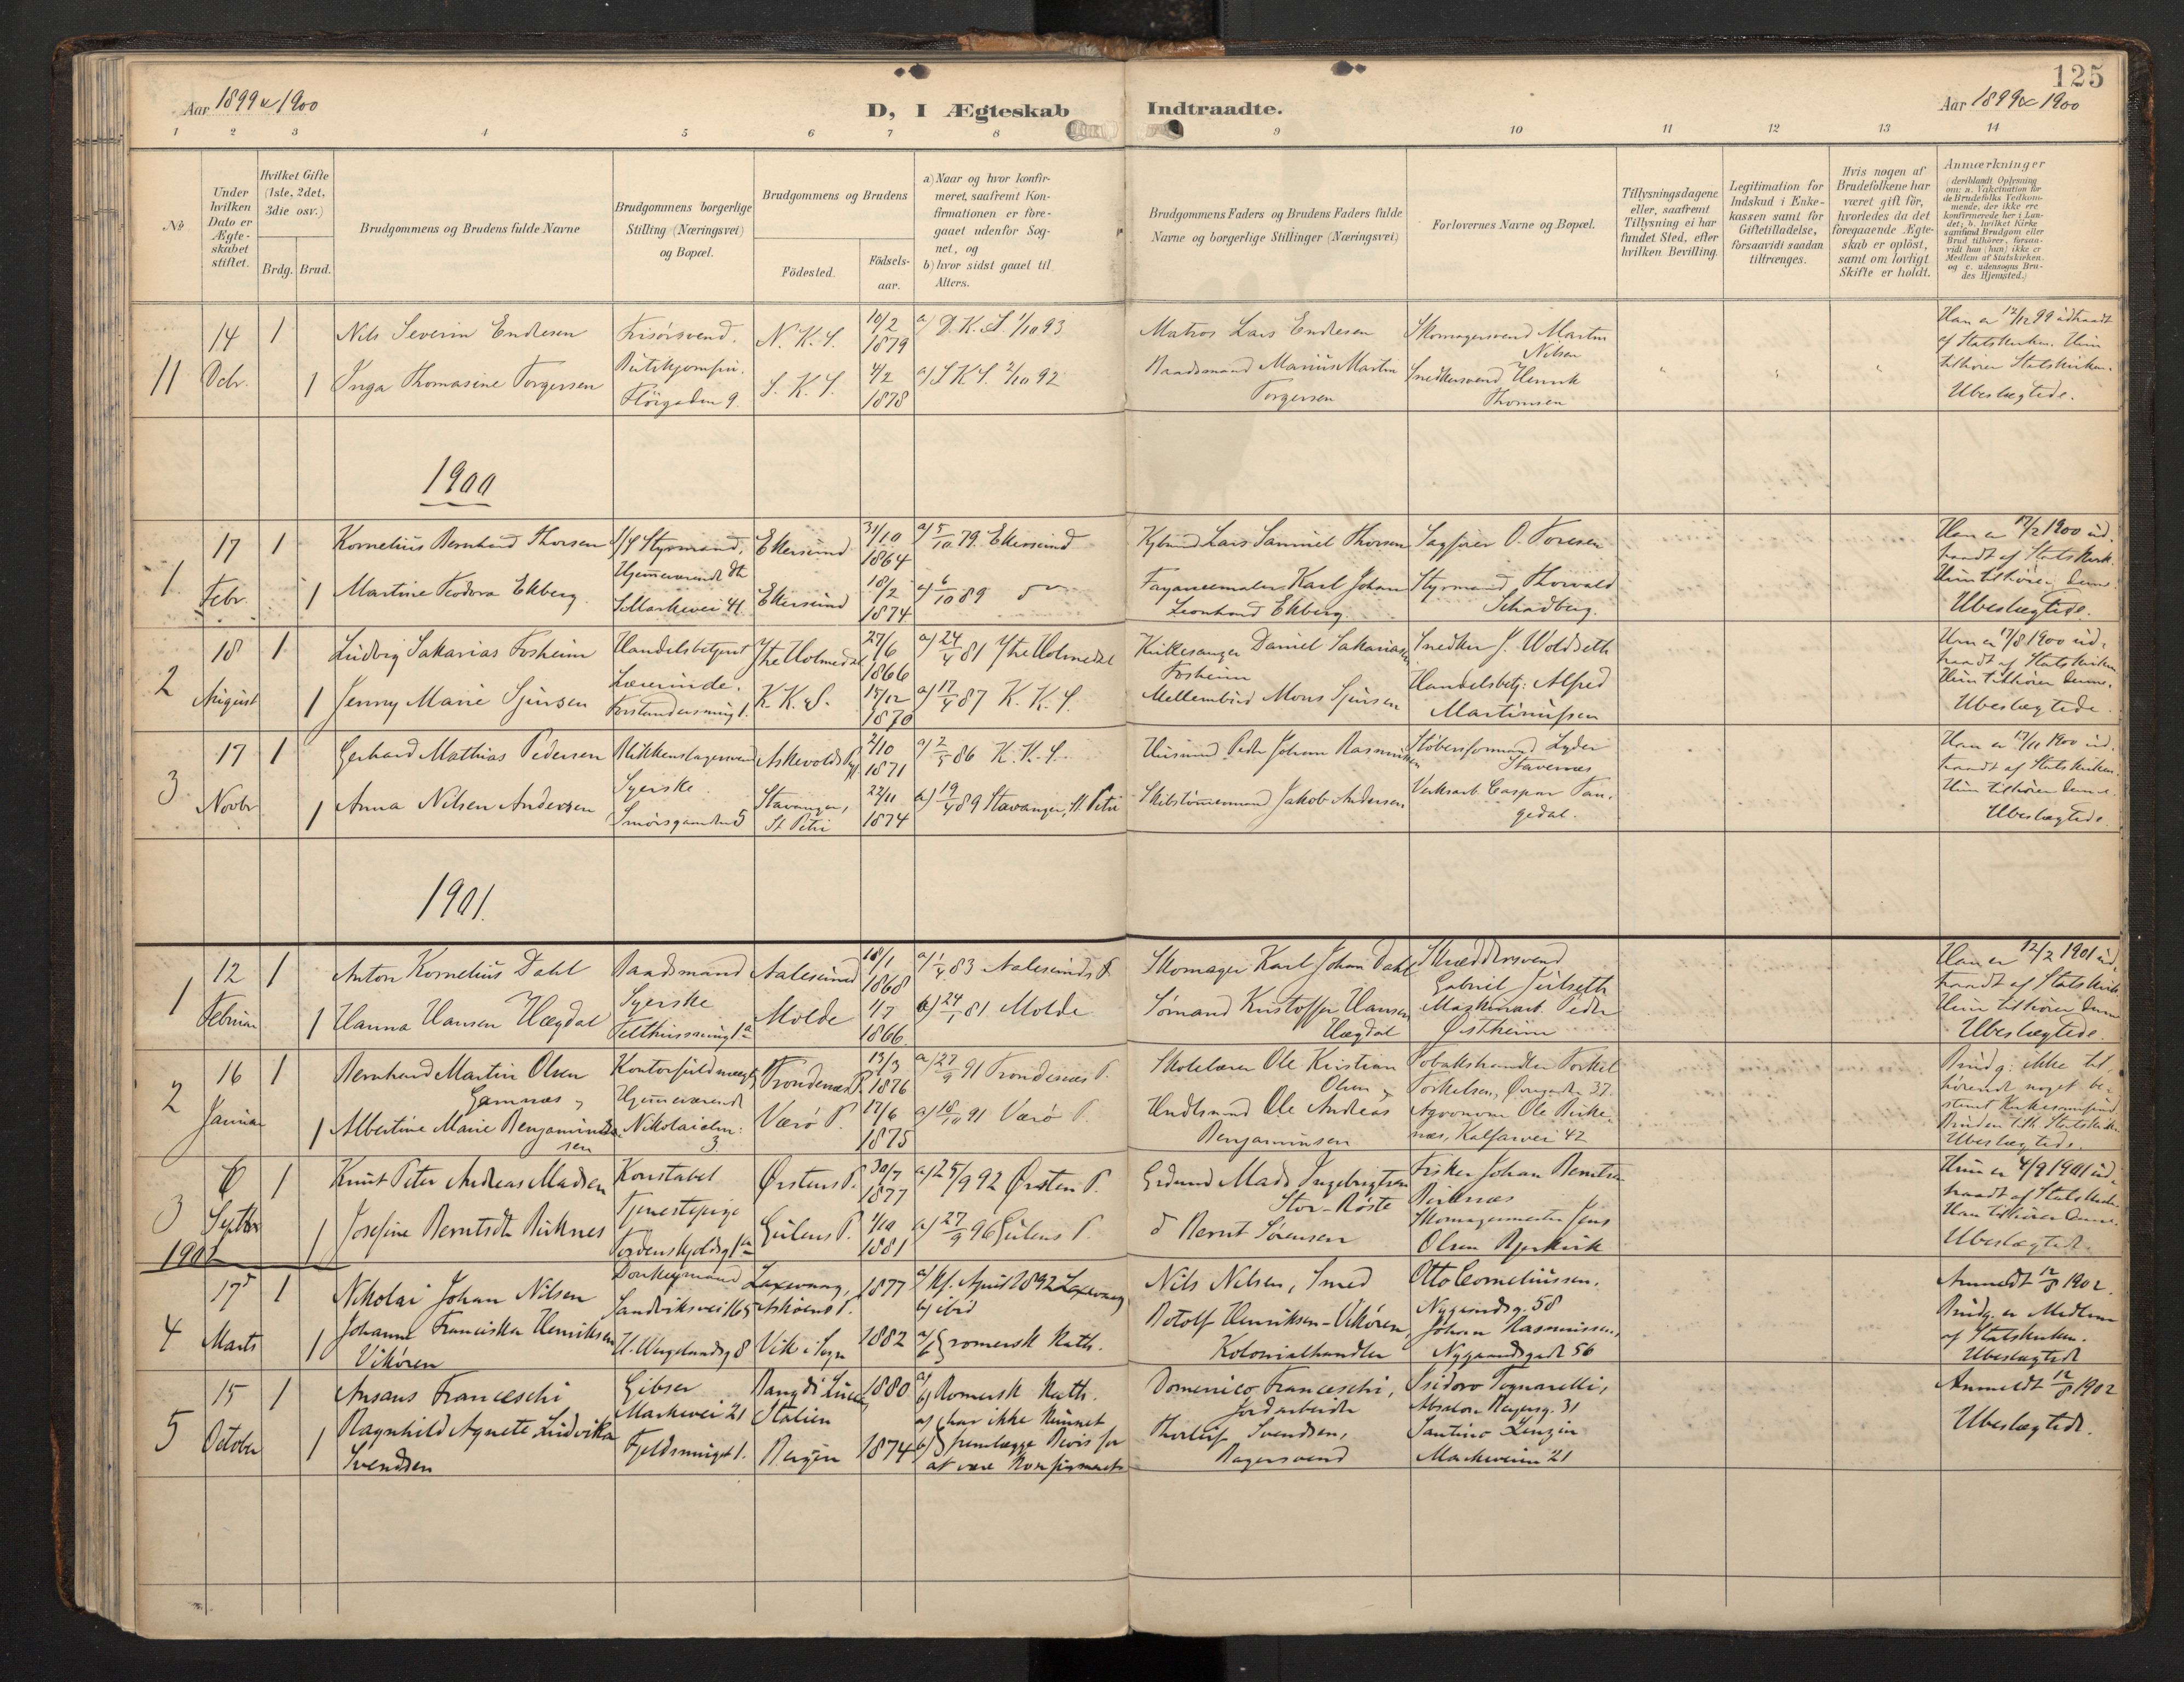 125
Aar 1899 & 1900
D, I Ægteskab Indtraadte.
Aar 1899 & 1900
1 2 3 4 5 6 7 8 9 10 11 12 13 14
No
Under hvilken Dato er Ægte-skabet stiftet.
Hvilket Gifte (1ste, 2det, 3die osv.)
Brdg. Brud.
Brudgommens og Brudens fulde Navne
Brudgommens borgerlige Stilling (Næringsvei) og Bopæl.
Brudgommens og Brudens
Födested.
Födsels-aar.
a) Naar og hvor konfir-meret, saafremt Kon-firmationen er fore-gaaet udenfor Sog-net, og
b) hvor sidst gaaet til Alters.
Brudgommens Faders og Brudens Faders fulde Navne og borgerlige Stillinger (Næringsvei)
Forlovernes Navne og Bopæl.
Tillysningsdagene eller, saafremt Tillysning ei har fundet Sted, efter hvilken Bevilling.
Legitimation for Indskud i Enke-kassen samt for Giftetilladelse, forsaavidt saadan tiltrænges.
Hvis nogen af Brudefolkene har været gift för, hvorledes da det foregaaende Ægte-skab er oplöst, samt om lovligt Skifte er holdt.
Anmærkninger
(deriblandt Oplysning om: a. Vakcination for de Brudefolks Vedkom-mende, der ikke ere konfirmerede her i Lan-det; b. hvilket Kirke-samfund Brudgom eller Brud tilhörer, forsaa-vidt han (hun) ikke er Medlem af Statskirken. og c. udensogns Bru-des Hjemsted.)
11
14 Dcbr.
1
Nils Severin Endresen
Frisörsvend.
N. K. S.
10/2 1879
a) D. K. S. 1/10 93
Matros Lars Endresen
Skomagersvend Martin Nilsen
Han er 12/12 99 udtraadt af Statskirken. Hun tilhörer Statskirken. Ubeslegtede.
1
Inga Thomasine Torgersen
S. K. S.
4/2 1878
a) S. K. S. 2/10 92
Baadsmand Marius Martin Torgersen
Snedkersvend Henrik Thomsen
1900
1.
17 Febr.
1
Kornelius Bernhard Thorsen
Styrmand,
Ekersund
31/10 1864
a) 5/10 79. Ekersund
Lars Samuel Thorsen
Sagförer O. Foresen
Han er 17/2 1900 udtraadt af Statskirk. Hun tilhörer denne. Ubeslegtede.
1
Martine Teodora Ekberg
Hjemmeværende Dtr
S. Markevei 41.
Ekersund
18/2 1874
a) 6/10 89
Fayancemaler Karl Johan Leonhard Ekberg.
Styrmand Thorvald Schadberg.
2
18 August
1
Ludvig Sakarias Fosheim
Handelsbetjent
Ytre Holmedal
27/6 1866
a) 24/4 81 Ytre Holmedal
Kirkesanger Daniel Sakariasen Fosheim
Snedker J. Woldseth
Han er 17/8 1900 udtraadt af Statskirken Hun tilhörer denne. Ubeslegtede.
1
Jenny Marie Sjursen
Lærerinde.
K. K. S.
15/12 1870
a) 17/4 87 K. K. S.
Mellembud Mons Sjursen
Handelsbetj: Alfred Martinussen
3
17 Novbr
1
Gerhard Mathias Pedersen
Blikkenslagersvend
Askevolds Pgj
2/10 1871
a) 2/5 86 K. K. S.
Husmd. Peder Johan Rasmussen
Stöberiformand Lyder Stavernes
Han er 17/11 1900 udtraadt af Statskirken. Hun tilhörer denne. Ubeslegtede.
1
Anna Nilsen Andersen
Syerske
Smörsgaarden 5
Stavanger, St Petri
22/11 1874
a) 19/4 89 Stavanger, St. Petri
Skibstömmermand Jakob Andersen
Verksarb. Caspar Tangedal.
1901.
1
12 Februar
1
Anton Kornelius Dahl
Baadsmand
Aalesund
18/1 1868
a) 1/4 83 Aalesunds P.
Skomager Karl Johan Dahl
Skræddersvend Gabriel Julseth
Han er 12/2 1901 udtraadt af Statskirk Hun tilhörer denne Ubeslegtede.
1
Hanna Hansen Hægdal
Syerske
Molde
4/7 1866.
24/1 81 Molde
Sömand Kristoffer Hansen Hægdal
Maskinarb. Peder Östheim
2
16 Januar
1
Bernhard Martin Olsen Gamnæs
Kontorfuldmægt
Trondenæs P.
13/3 1876
a) 27/9 91 Trondenæs P.
Skolelærer Ole Kristian Olsen
Tobakshandler Torkel Torkelsen, 37.
Brudg: ikke tilhörende noget bestemt Kirkesamfund. Bruden tilh. Statskirken Ubeslegtede.
1
Albertine Marie Benjaminsen
Hjemmeværende
Nikolaialm: 3.
Værö P.
17/6 1875
a) 18/10 91 Værö P.
Handlsmand Ole Andreas Benjaminsen
Agronom Ole Birkenæs, Kalfarvei 42
3
6 Septbr
1
Knut Peter Andreas Madsen
Konstabel
Örstens P.
30/7 1877
a) 25/9 92 Örsten P.
Grdmand Mads Ingebrigtsen Stor-Röste
Fisker Johan Berntsen Birknæs
Hun er 4/9 1901 udtraadt af Statskirke Han tilhörer denne. Ubeslegtede.
1
Josefine Berntsdtr Birknes
Tjenestepige
Tordenskjoldsg 1a
Gulens P.
1/10 1881
a) 27/9 96 Gulens P.
do Bernt Sörensen
Skomagermester Jens Olsen Bjerkvik
1902
4
17 Marts
1
Nikolai Johan Nilsen
Donkeymand
Sandviksvei 165
Laxevaag, Asköens P.
1877
a) Kf. April 1892 Laxevaag
b) ibid
Nils Nilsen, Smed
Otto Corneliussen. Nygaardsg. 58
Anmeldt 12/8 1902. Brudg. er Medlem af Statskirken. Ubeslegtede
1
Johanne Franciska Henriksen Vikören
H. Wergelandsg 8
Vik i Sogn
1882
a) b) romersk Kath.
Botolf Henriksen-Vikören, Kolonialhandler
Johan Rasmussen, Nygaardsgade 56
5
15 October
1
Ansans Franceschi
Gibser
Markevei 21
Italien
1880
a) b) Romersk Kath.
Domenico Franceschi, Jordarbeider
Isidoro Tognarelli, Absalon Beyersg. 31
Anmeldt 12/8 1902
Ubeslegtede.
1
Ragnhild Agnete Ludvika Svendsen
Fjeldsmuget 1.
Bergen
1874
a) b) har ikke kunnet fremlægge Bevis for at være Konfirmeret
Thorleif Svendsen, Bagersvend
Santino Lenzin
Markeveien 21